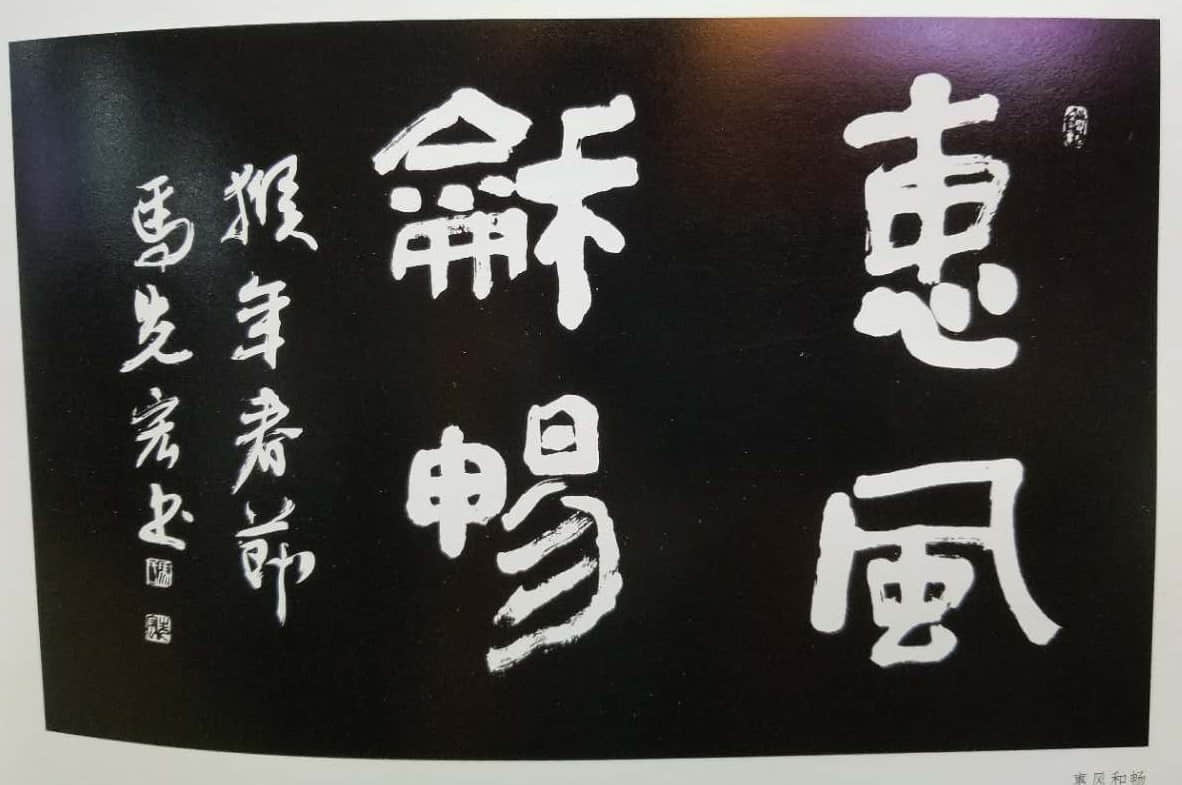 惠風
龢暢
猴年春節
馬先宏书
惠风和畅